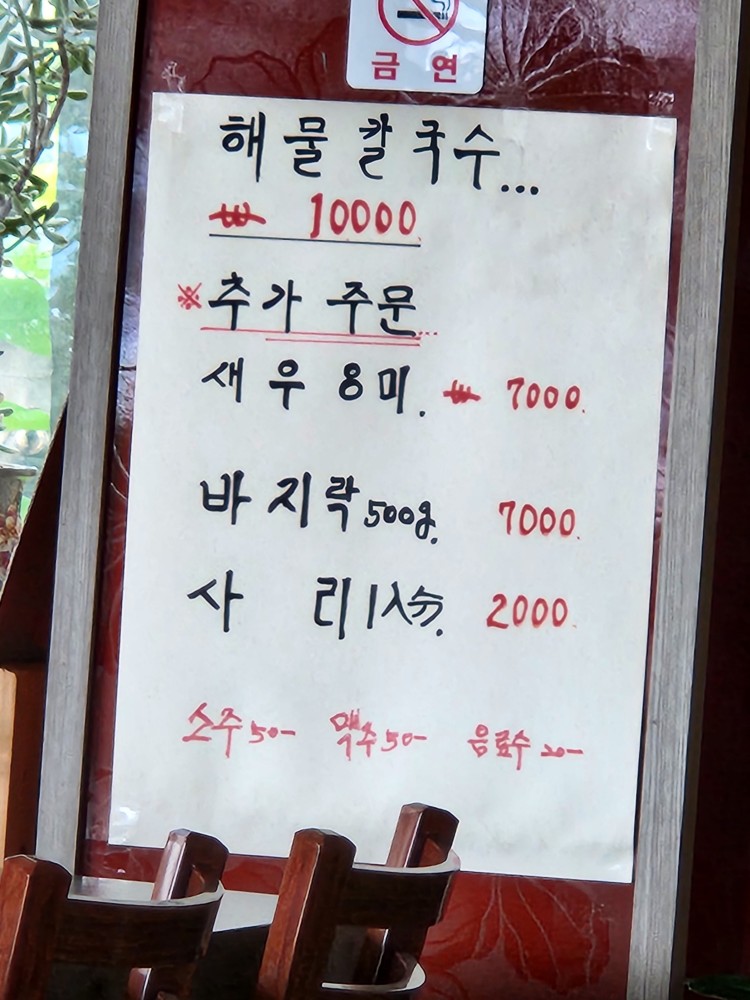 금 연
해물칼국수...
₩ 10000.
※추가 주문...
새우 8미. ₩ 7000.
바지락 500g. 7000.
사 리 1人分. 2000.
소주 50- 맥주 50- 음료수 20-